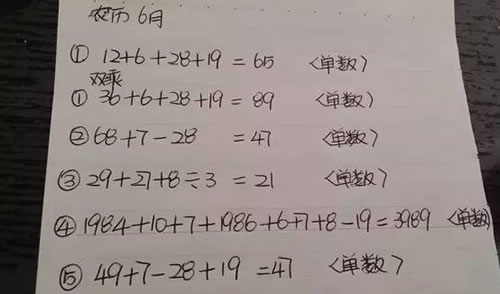 农历6月
① 12+6+28+19=65 〈单数〉
双乘
① 36+6+28+19=89 〈单数〉
② 68+7-28 =47 〈单数〉
③ 29+27+8÷3 =21 〈单数〉
④ 1984+10+7+1986+6+7+8-19=3989 〈单数〉
⑤ 49+7-28+19 =47 〈单数〉